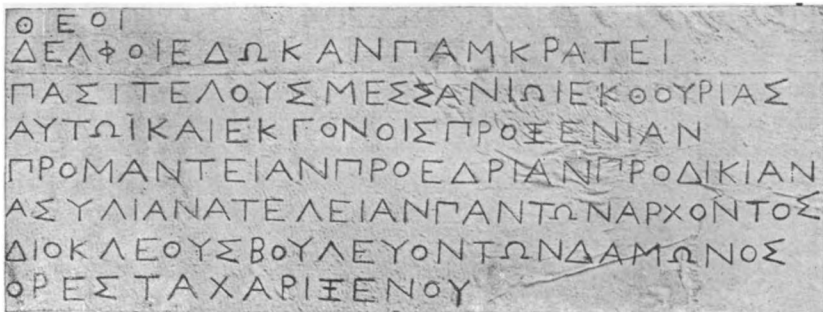 ΘΕΟΙ
ΔΕΛΦΟΙΕΔΩΚΑΝΠΑΜΚΡΑΤΕΙ
ΠΑΣΙΤΕΛΟΥΣΜΕΣΣΑΝΙΩΙΕΚΘΟΥΡΙΑΣ
ΑΥΤΩΙΚΑΙΕΚΓΟΝΟΙΣΠΡΟΞΕΝΙΑΝ
ΠΡΟΜΑΝΤΕΙΑΝΠΡΟΕΔΡΙΑΝΠΡΟΔΙΚΙΑΝ
ΑΣΥΛΙΑΝΑΤΕΛΕΙΑΝΠΑΝΤΩΝΑΡΧΟΝΤΟΣ
ΔΙΟΚΛΕΟΥΣΒΟΥΛΕΥΟΝΤΩΝΔΑΜΩΝΟΣ
ΟΡΕΣΤΑΧΑΡΙΞΕΝΟΥ